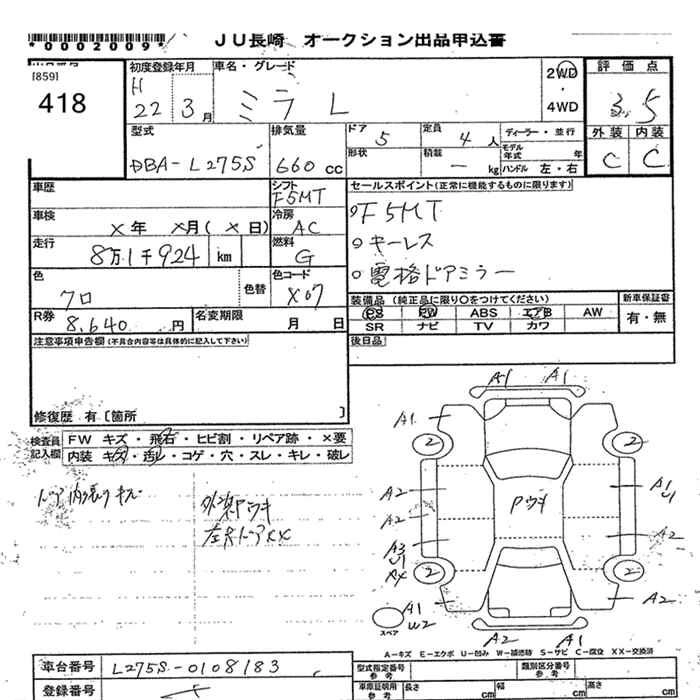 *0002009*
JU長崎 オークション出品申込書
[859]
418
初度登録年月 車名・グレード 2WD ・ 4WD 評価点
H 22 3月 ミラ L 3.5
型式 排気量 ドア 5 定員 4人 ディーラー・並行 外装 内装
DBA-L275S 660cc 形状 積載 ー kg モデル年式 年 C C
ハンドル 左・右
車歴 シフト F5MT セールスポイント(正常に機能するものに限ります)
車検 X年 X月(X日) 冷房 AC ○F5MT
走行 8万1千924 km 燃料 G ○キーレス
色 クロ 色替 色コード X07 ○電格ドアミラー
R券 8,640円 名変期限 月 日
装備品 (純正品に限り○をつけてください) 新車保証書
PS PW ABS エアB AW 有・無
SR ナビ TV カワ
注意事項申告欄(不具合内容等は具体的に記入して下さい) 後日品
修復歴 有〔箇所 〕
検査員記入欄 FW キズ・飛石・ヒビ割・リペア跡・×要
内装 キズ・汚レ・コゲ・穴・スレ・キレ・破レ
ドア内張りキズ
外装Pウキ
A1 A1
A1
2 2
A2 Pウキ A1 U1
A2
A3 U1 A2
A4
2 2
A1 U2 A2
スペア
A2 A1
A-キズ E-エクボ U-凹み W-補修跡 S-サビ C-腐食 XX-交換済
車台番号 L275S-0108183
型式指定番号 参考 類別区分番号 参考
登録番号
車庫証明用 参考 長さ cm 幅 cm 高さ cm